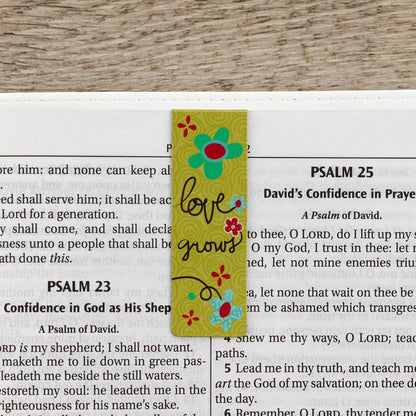 ore him: and none can keep
eed shall serve him; it shall be
Lord for a generation.
y shall come, and shall
ousness unto a people that shall
ath done this.
PSALM 23
Confidence in God as His
A Psalm of David.
LORD is my shepherd; I shall not want.
maketh me to lie down in green pas-
leadeth me beside the still waters.
estoreth my soul: he leadeth me in the
righteousness for his name's sake.
love
grows
PSALM 25
David's Confidence in Praye
A Psalm of David.
to thee, O LORD, do I lift up my s
O my God, I trust in thee: let
med, let not mine enemies
ea, let none that wait on thee be
em be ashamed which transgres
4 Shew me thy ways, O LORD; teach
paths.
5 Lead me in thy truth, and teach me
art the God of my salvation; on thee d
the day.
6 Remember, O LORD, thy tender